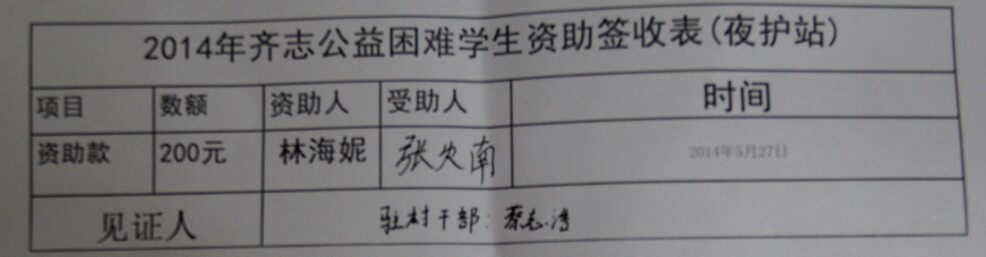 2014年齐志公益困难学生资助签收表(夜护站)
项目 数额 资助人 受助人 时间
资助款 200元 林海妮 张火南 2014年5月27日
见证人 驻村干部:蔡志